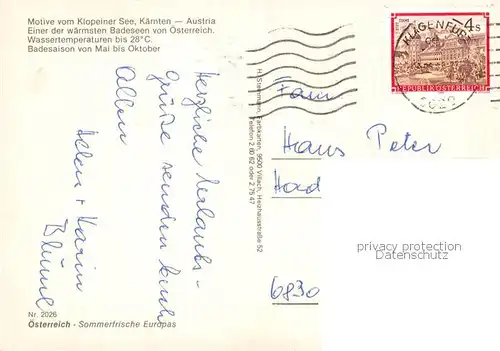 Motive vom Klopeiner See, Kärnten — Austria
Einer der wärmsten Badeseen von Österreich.
Wassertemperaturen bis 28°C.
Badesaison von Mai bis Oktober
Herzliche Urlaubs-
grüße senden Euch
Allen
Helen + Karin
Blümel
Nr. 2026
Österreich - Sommerfrische Europas
H. Steinmann, Farbkarten, 9500 Villach, Heizhausstraße 52
Telefon 2 60 62 oder 2 75 47
4 S
REPUBLIK ÖSTERREICH
KLAGENFURT
Fam
Hans Peter
Hard
6830
privacy protection
VERORDNUNG